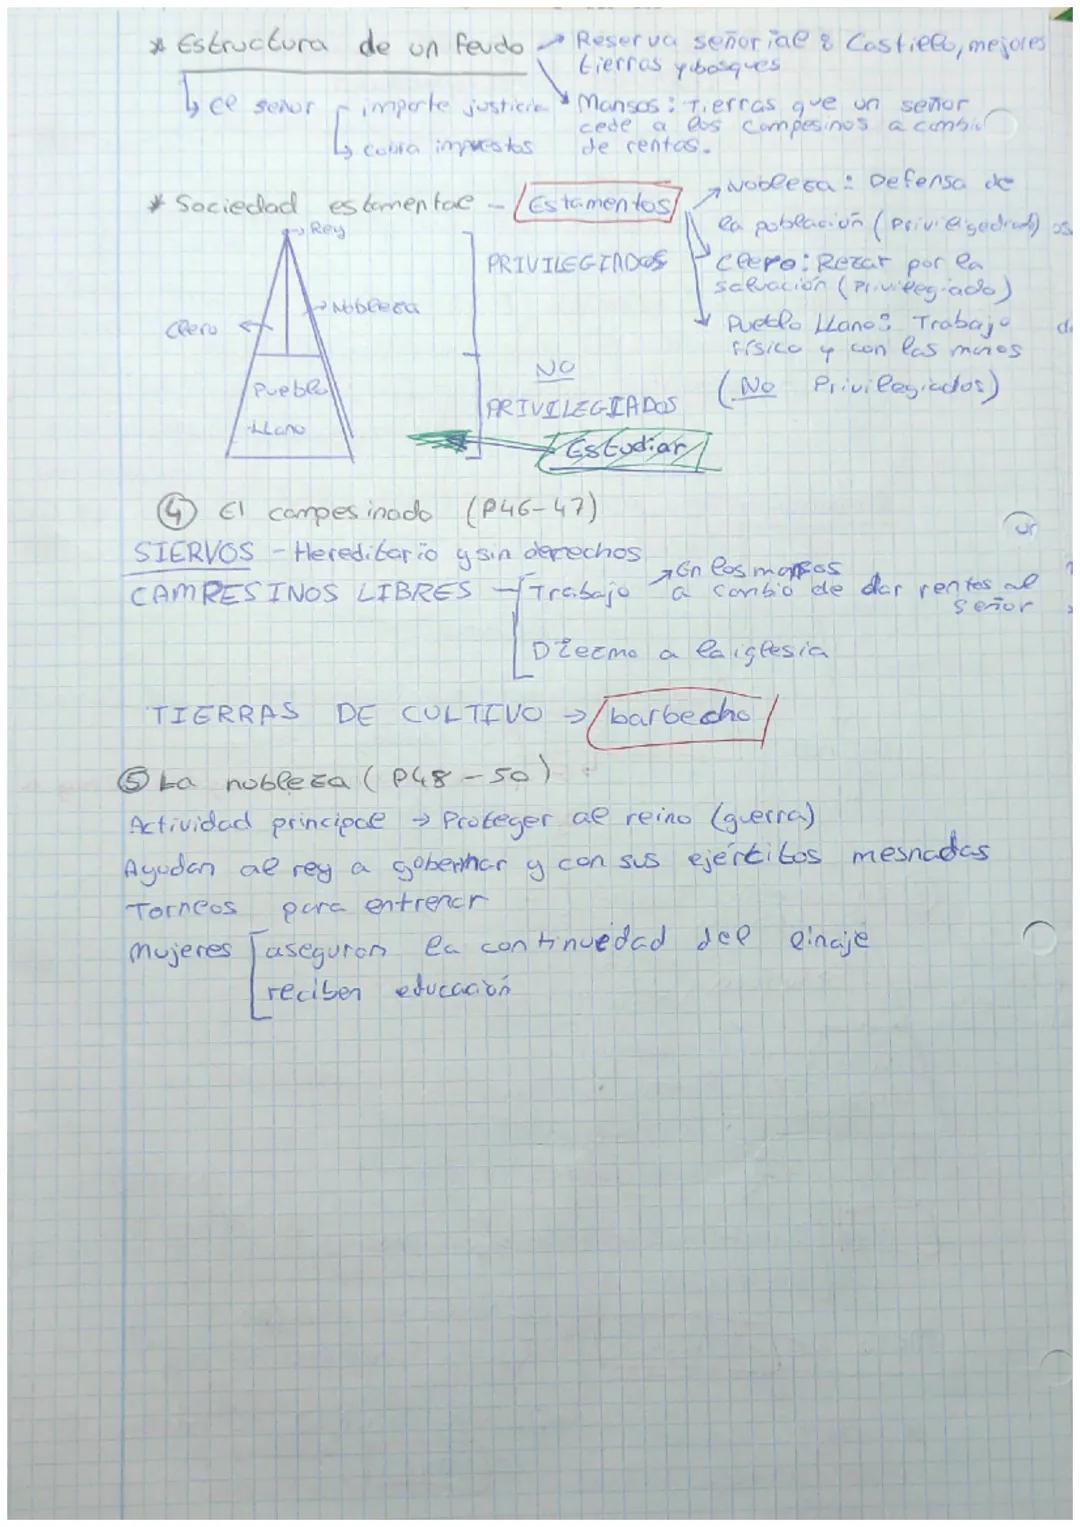 * Estructura de un feudo → Reserva señorial: Castillo, mejores
tierras y bosques
↳ el señor imparte justicia
↳ cobra impuestos
Mansos: Tierras que un señor
cede a los campesinos a cambio
de rentas.
* Sociedad estamental - Estamentos
Nobleza: Defensa de
la población (Privilegiados)
Clero: Rezar por la
salvación (Privilegiado)
Pueblo Llano: Trabajo
físico y con las manos
(No Privilegiados)
Rey
Nobleza
Clero
Pueblo
Llano
PRIVILEGIADOS
NO
PRIVILEGIADOS
Estudiar
④ El campesinado (P46-47)
SIERVOS - Hereditario y sin derechos
CAMPESINOS LIBRES - Trabajo → En los mansos
a cambio de dar rentas al
señor
Diezmo a la iglesia
TIERRAS DE CULTIVO → barbecho
⑤ La nobleza (P48-50)
Actividad principal → Proteger al reino (guerra)
Ayudan al rey a gobernar y con sus ejércitos mesnadas
Torneos para entrenar
Mujeres aseguran la continuedad del linaje
reciben educación